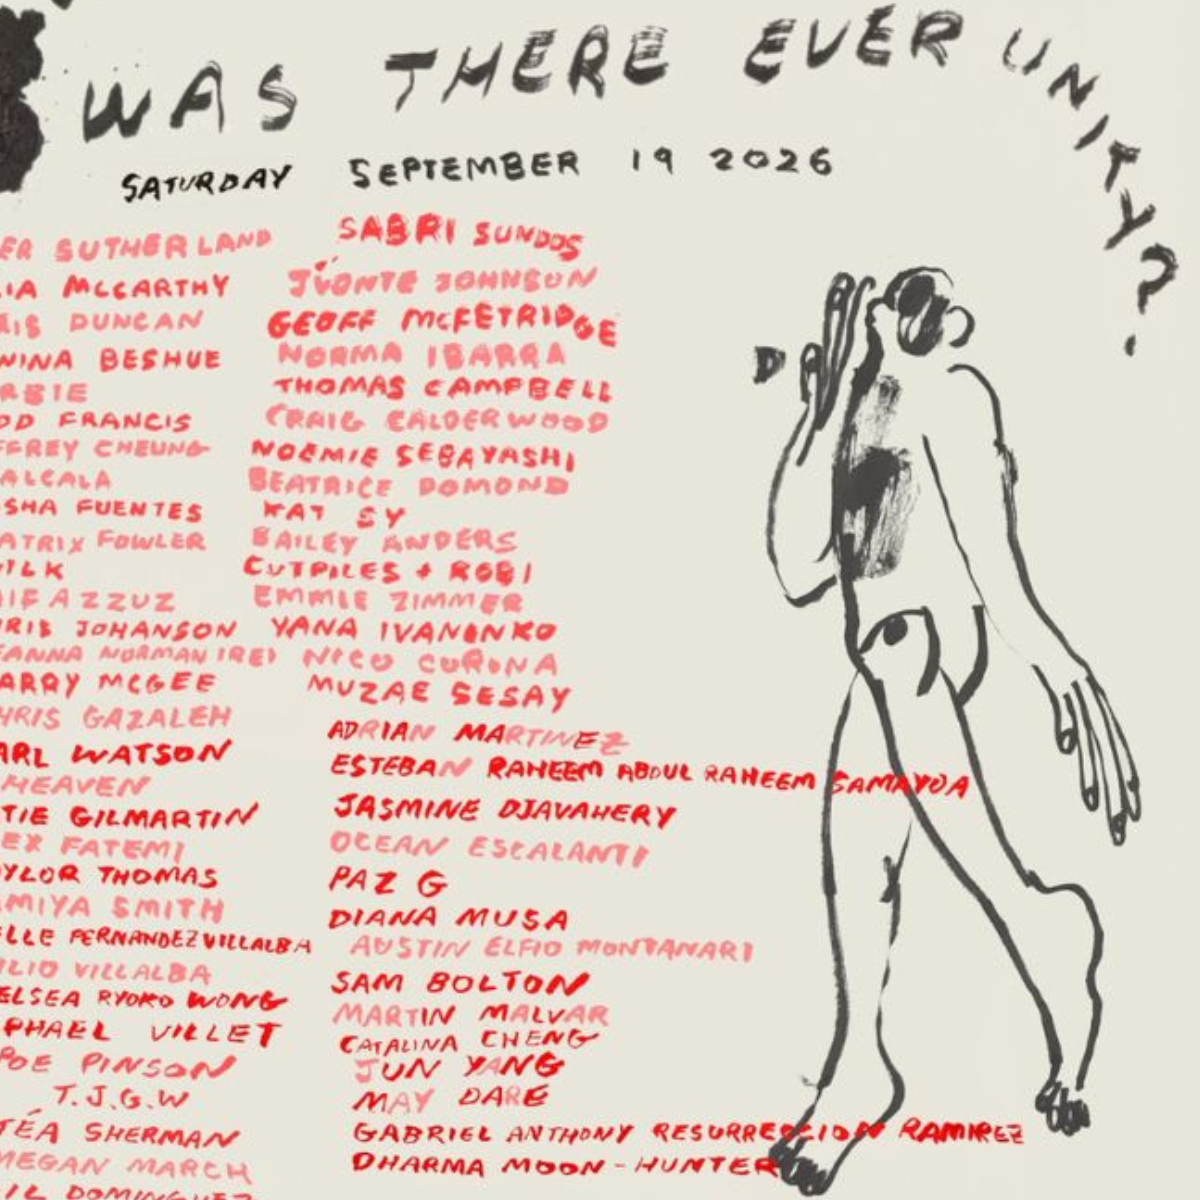 WAS THERE EVER UNITY?
SATURDAY SEPTEMBER 19 2026
ER SUTHERLAND
IA MCCARTHY
IS DUNCAN
NINA BESHUE
RBIE
DD FRANCIS
FFREY CHEUNG
ALCALA
SHA FUENTES
ATRIX FOWLER
ILK
AIF AZZUZ
RIS JOHANSON
EANNA NORMAN IREI
ARRY MCGEE
HRIS GAZALEH
ARL WATSON
HEAVEN
TIE GILMARTIN
EX FATEMI
YLOR THOMAS
AMIYA SMITH
ELLE FERNANDEZ VILLALBA
ILIO VILLALBA
ELSEA RYOKO WONG
PHAEL VILLET
POE PINSON
T.J.G.W
TÉA SHERMAN
MEGAN MARCH
IL DOMINGUEZ
SABRI SUNDOS
JVONTE JOHNSON
GEOFF MCFETRIDGE
NORMA IBARRA
THOMAS CAMPBELL
CRAIG CALDERWOOD
NOEMIE SEBAYASHI
BEATRICE DOMOND
KAT SY
BAILEY ANDERS
CUTPILES + ROBI
EMMIE ZIMMER
YANA IVANINKO
NICO CORONA
MUZAE SESAY
ADRIAN MARTINEZ
ESTEBAN RAHEEM ABDUL RAHEEM SAMAYOA
JASMINE DJAVAHERY
OCEAN ESCALANTI
PAZ G
DIANA MUSA
AUSTIN ELFIO MONTANARI
SAM BOLTON
MARTIN MALVAR
CATALINA CHENG
JUN YANG
MAY DARE
GABRIEL ANTHONY RESURRECCION RAMIREZ
DHARMA MOON-HUNTER